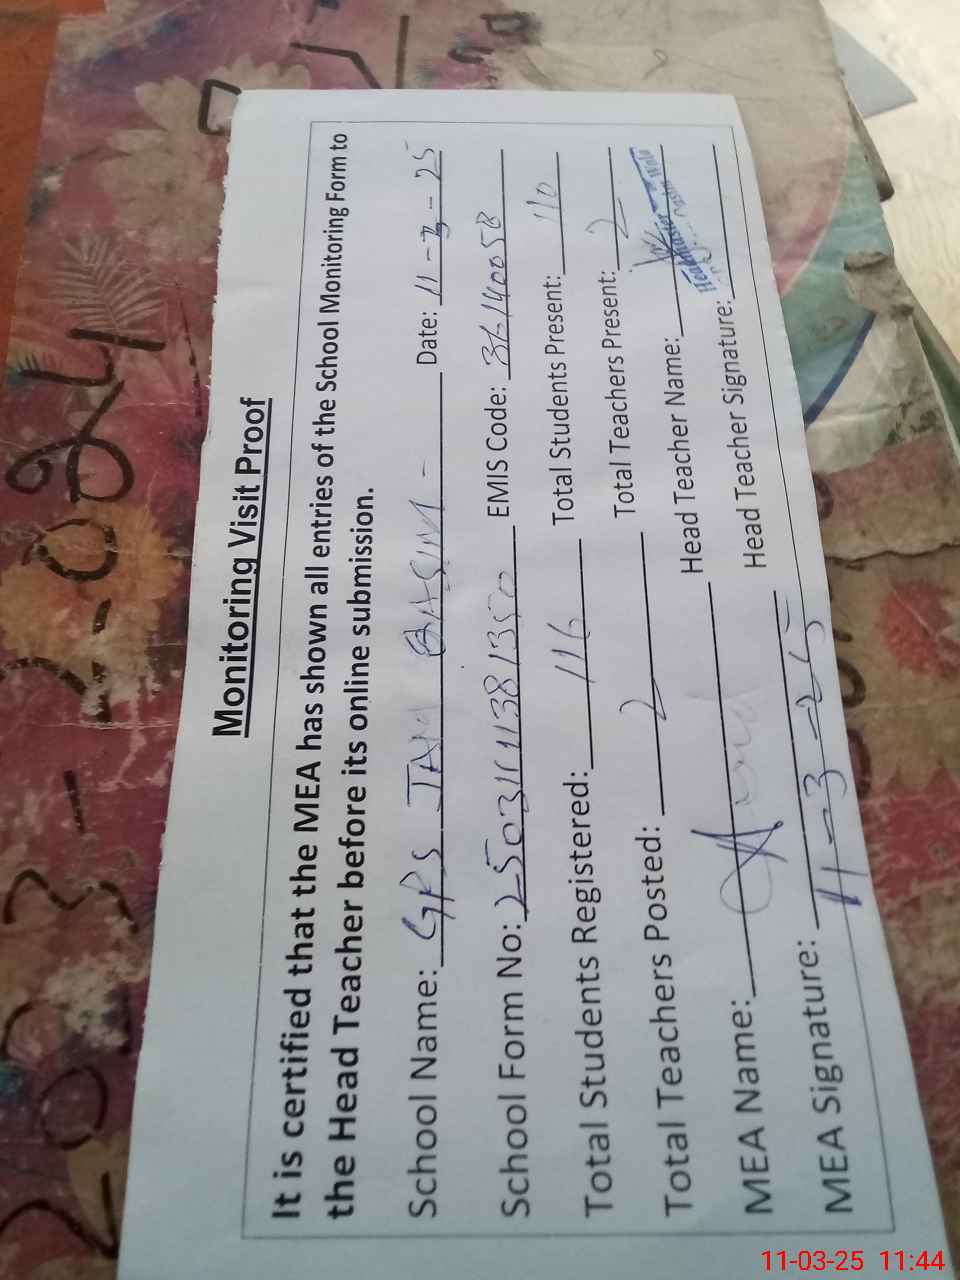 Monitoring Visit Proof
It is certified that the MEA has shown all entries of the School Monitoring Form to
the Head Teacher before its online submission.
School Name: GPS JAM QASIM - Date: 11-3-25
School Form No: EMIS Code: 36140058
Total Students Registered: 116 Total Students Present: 110
Total Teachers Posted: 2 Total Teachers Present: 2
MEA Name: Head Teacher Name:
Headmaster
MEA Signature: 11-3-25 Head Teacher Signature:
11-03-25 11:44